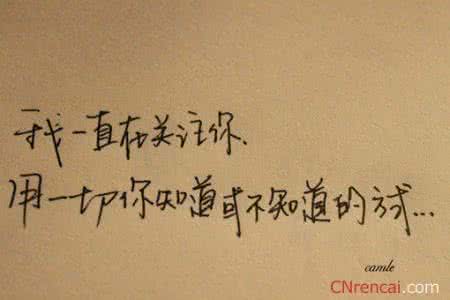 我一直在关注你.
用一切你知道或不知道的方式...
camle
CNrencai.com